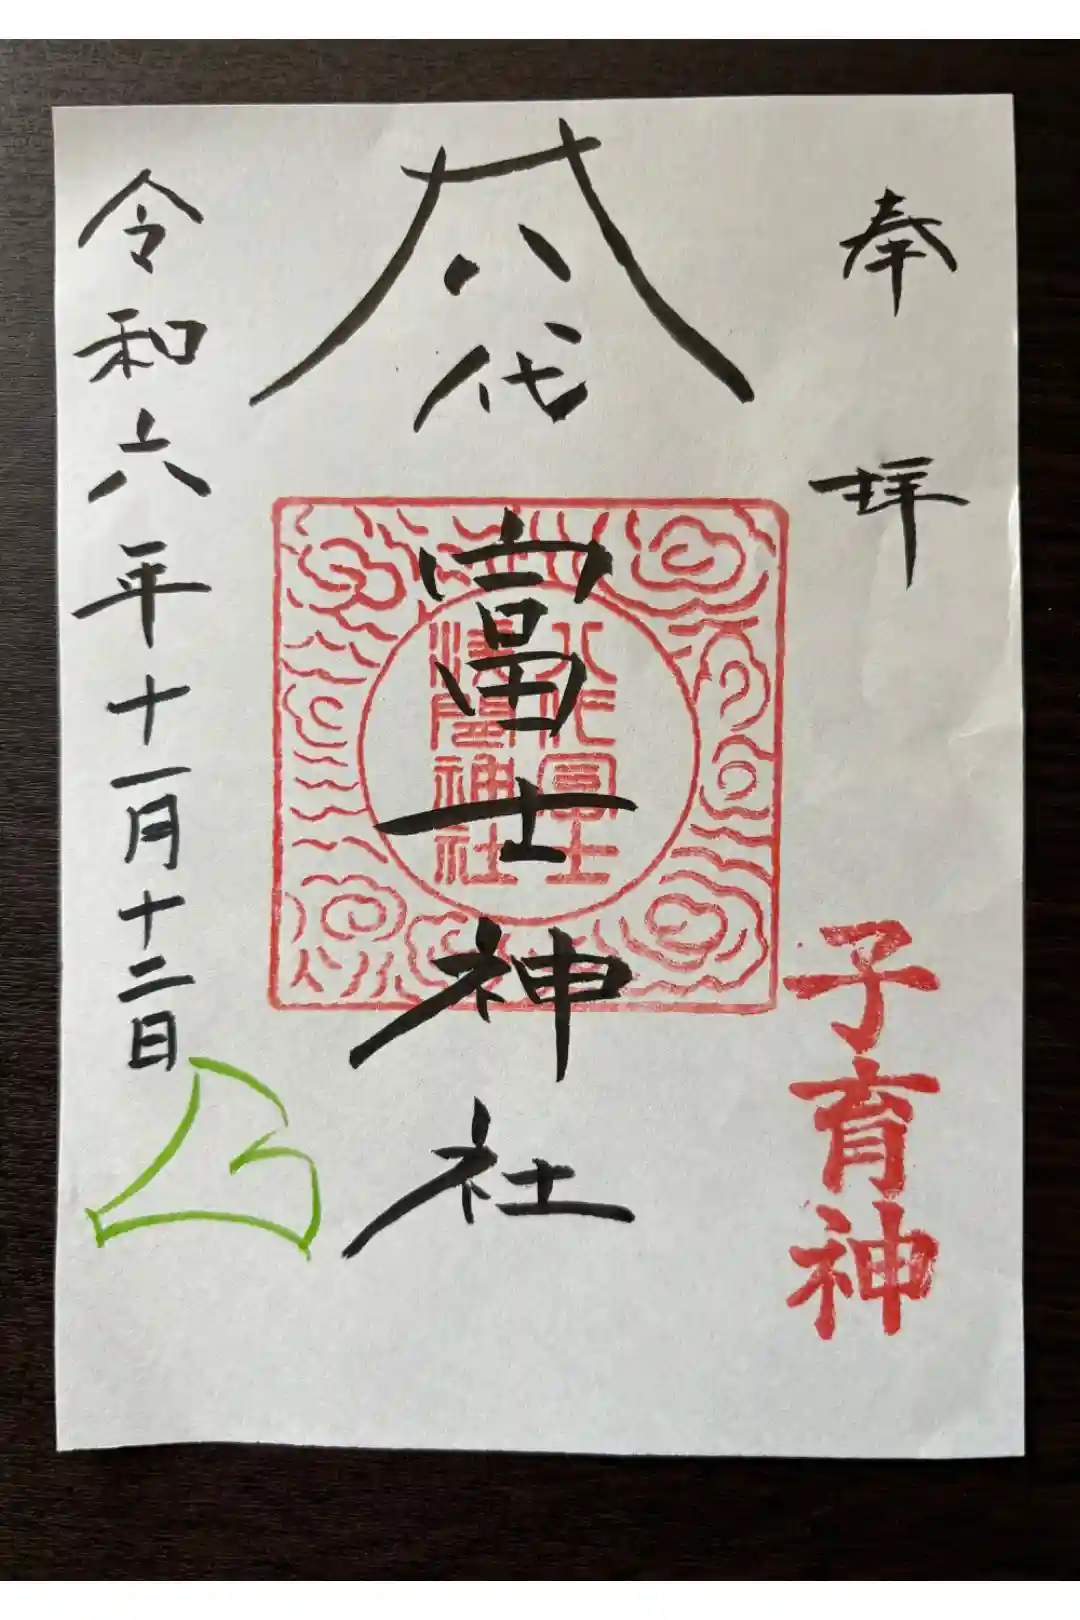 奉拝
子育神
八代
富士神社
八代冨士
浅間神社
令和六年十一月十二日